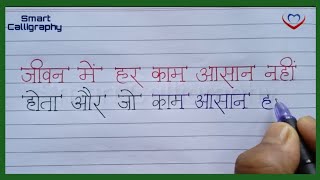 Smart
Calligraphy
जीवन में हर काम आसान नहीं
होता और जो काम आसान ह